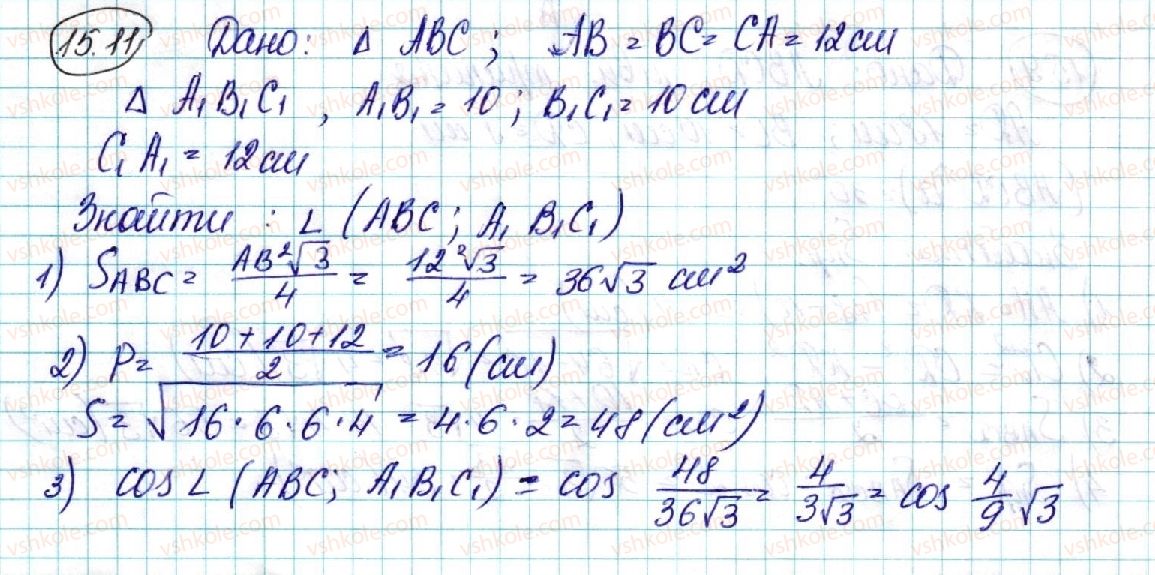 15.11. Дано: Δ ABC; AB = BC = CA = 12 см
Δ A₁B₁C₁, A₁B₁ = 10; B₁C₁ = 10 см
C₁A₁ = 12 см
Знайти: ∠(ABC; A₁B₁C₁)
1) S ABC = AB²√3/4 = 12²√3/4 = 36√3 см²
2) P = 10+10+12/2 = 16 (см)
S = √16·6·6·4 = 4·6·2 = 48 (см²)
3) cos ∠(ABC; A₁B₁C₁) = cos 48/36√3 = 4/3√3 = cos 4/9 √3